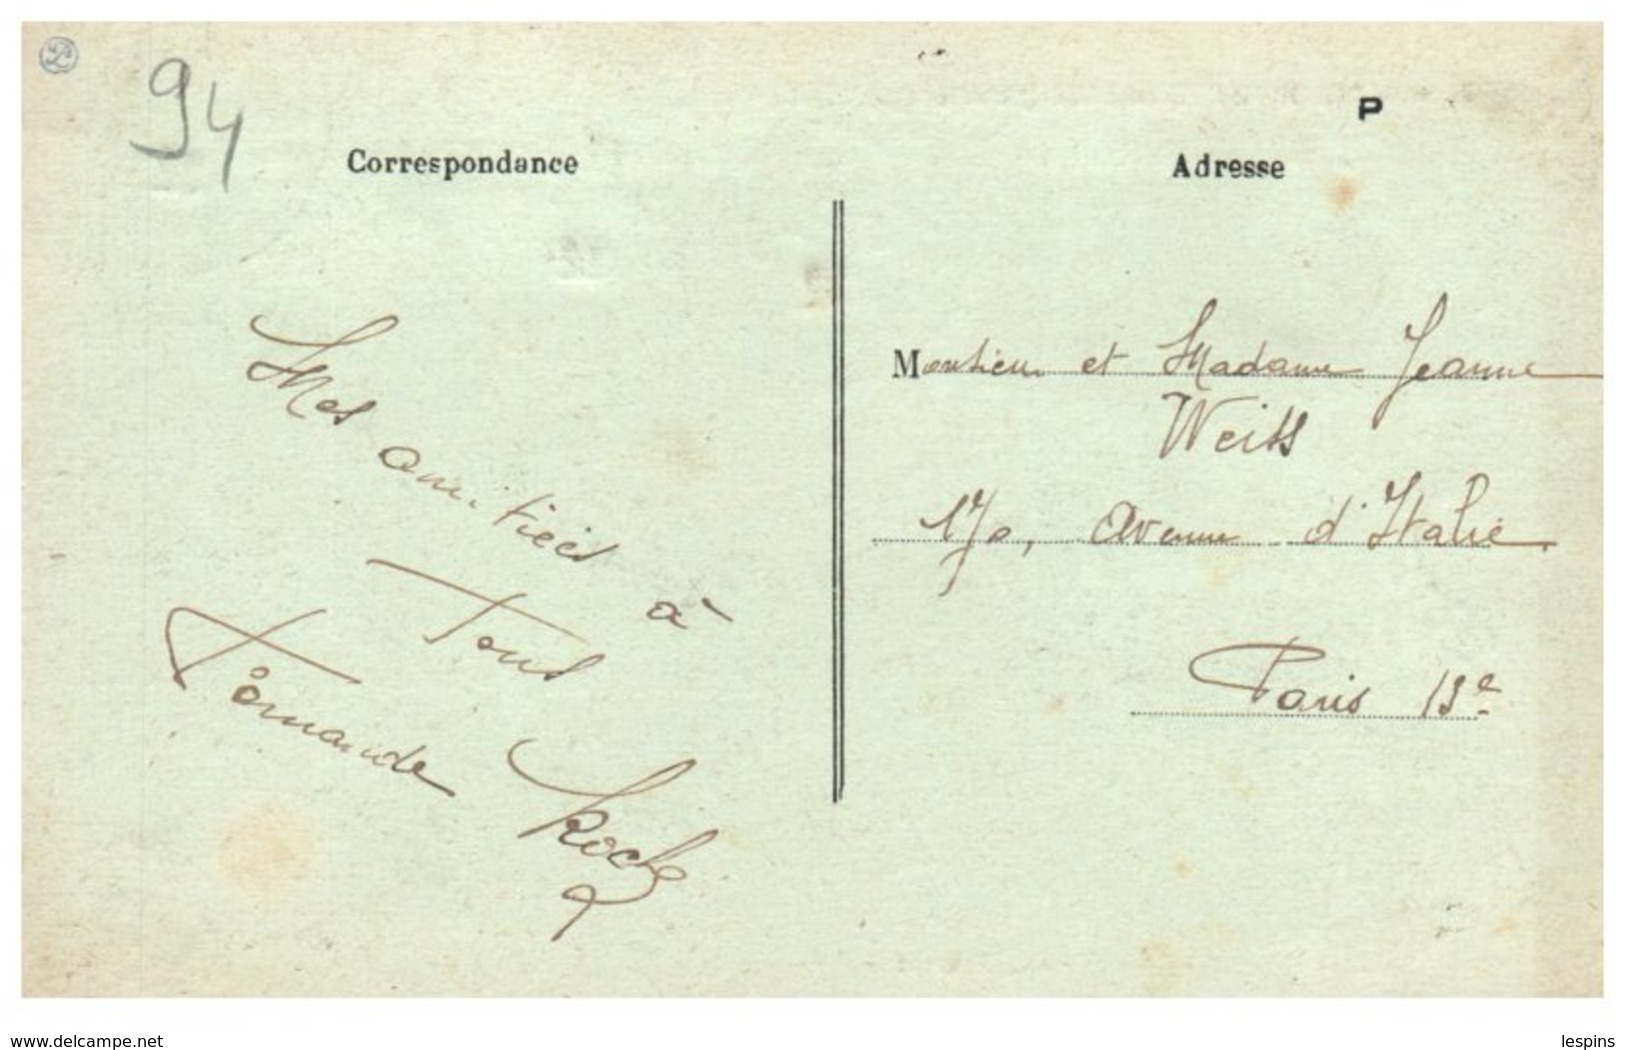 94
Correspondance
Mes amitiées à
Tous
Fernande Roche
P
Adresse
Monsieur et Madame Jeanne
Weiss
170, Avenue d'Italie
Paris 13e
www.delcampe.net
lespins